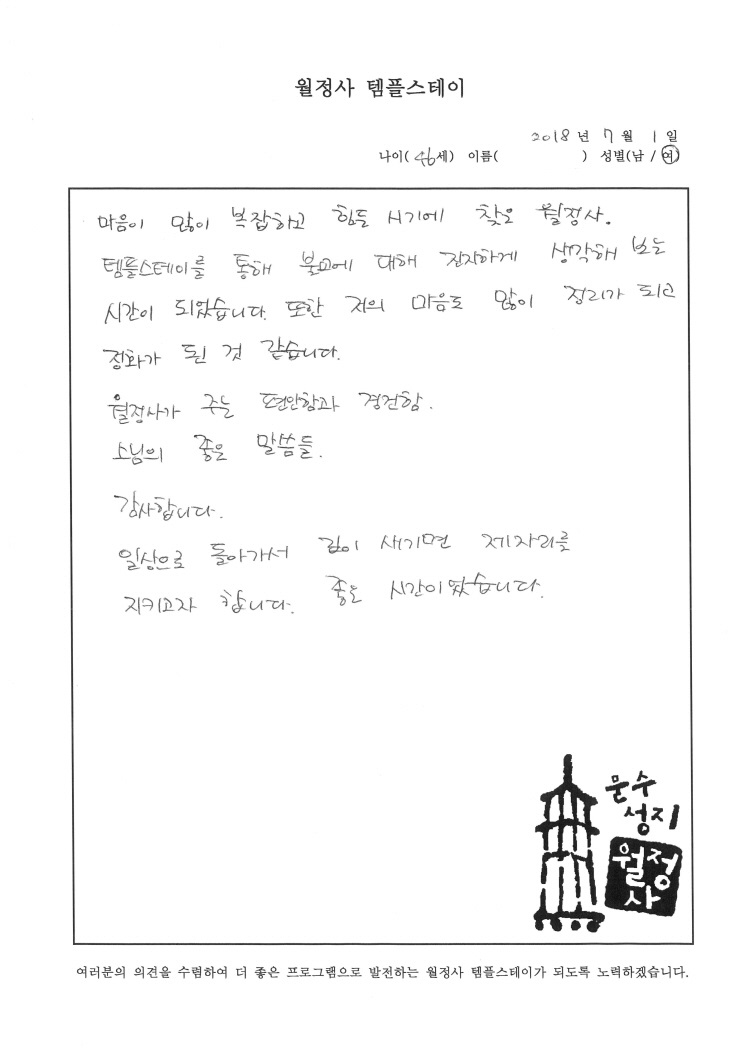 월정사 템플스테이
2018 년 7 월 1 일
나이( 46세) 이름( ) 성별(남 / 여)
마음이 많이 복잡하고 힘든 시기에 찾은 월정사.
템플스테이를 통해 불교에 대해 진지하게 생각해 보는
시간이 되었습니다. 또한 저의 마음도 많이 정리가 되고
정화가 된 것 같습니다.
월정사가 주는 편안함과 경건함.
스님의 좋은 말씀들.
감사합니다.
일상으로 돌아가서 깊이 새기면 제자리를
지키고자 합니다. 좋은 시간이었습니다.
문수
성지
월정
사
여러분의 의견을 수렴하여 더 좋은 프로그램으로 발전하는 월정사 템플스테이가 되도록 노력하겠습니다.